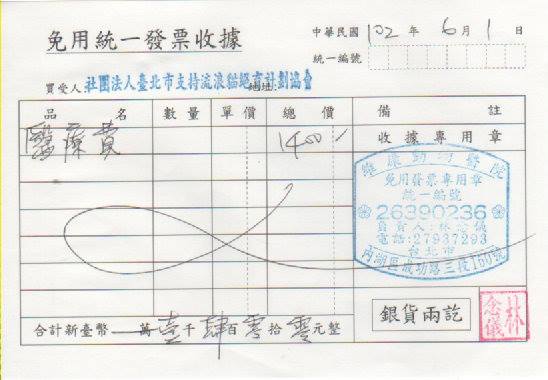 免用統一發票收據
中華民國 102 年 6 月 1 日
統一編號
買受人：社團法人臺北市支持流浪貓絕育計劃協會 地址：
品名 數量 單價 總價 備註
醫療費 1400 收據專用章
康動物醫院
免用發票專用章
統一編號
26390236
負責人：林念儀
電話：27937293
台北市
內湖區成功路三段160號
合計新臺幣 萬壹千肆百零拾零元整
銀貨兩訖
林念儀